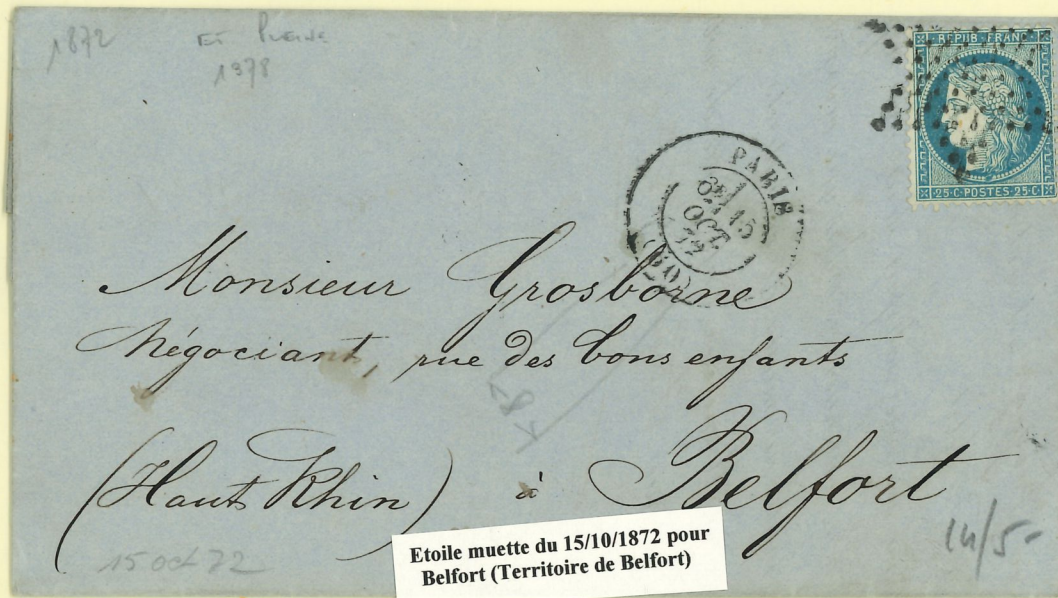 1872
Et Pleine
1878
REPUB·FRANC
25·C·POSTES·25·C
PARIS
6E/ 15
OCT.
72
(60)
Monsieur Grosborne
négociant, rue des bons enfants
(Haut Rhin) à Belfort
15 oct 72
14/5-
Etoile muette du 15/10/1872 pour
Belfort (Territoire de Belfort)